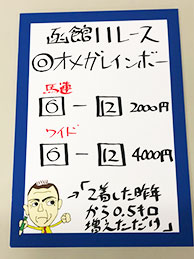 函館11レース
◎オメガレインボー
馬連
6 - 12 2000円
ワイド
6 - 12 4000円
「2着した昨年
から0.5キロ
増えただけ」